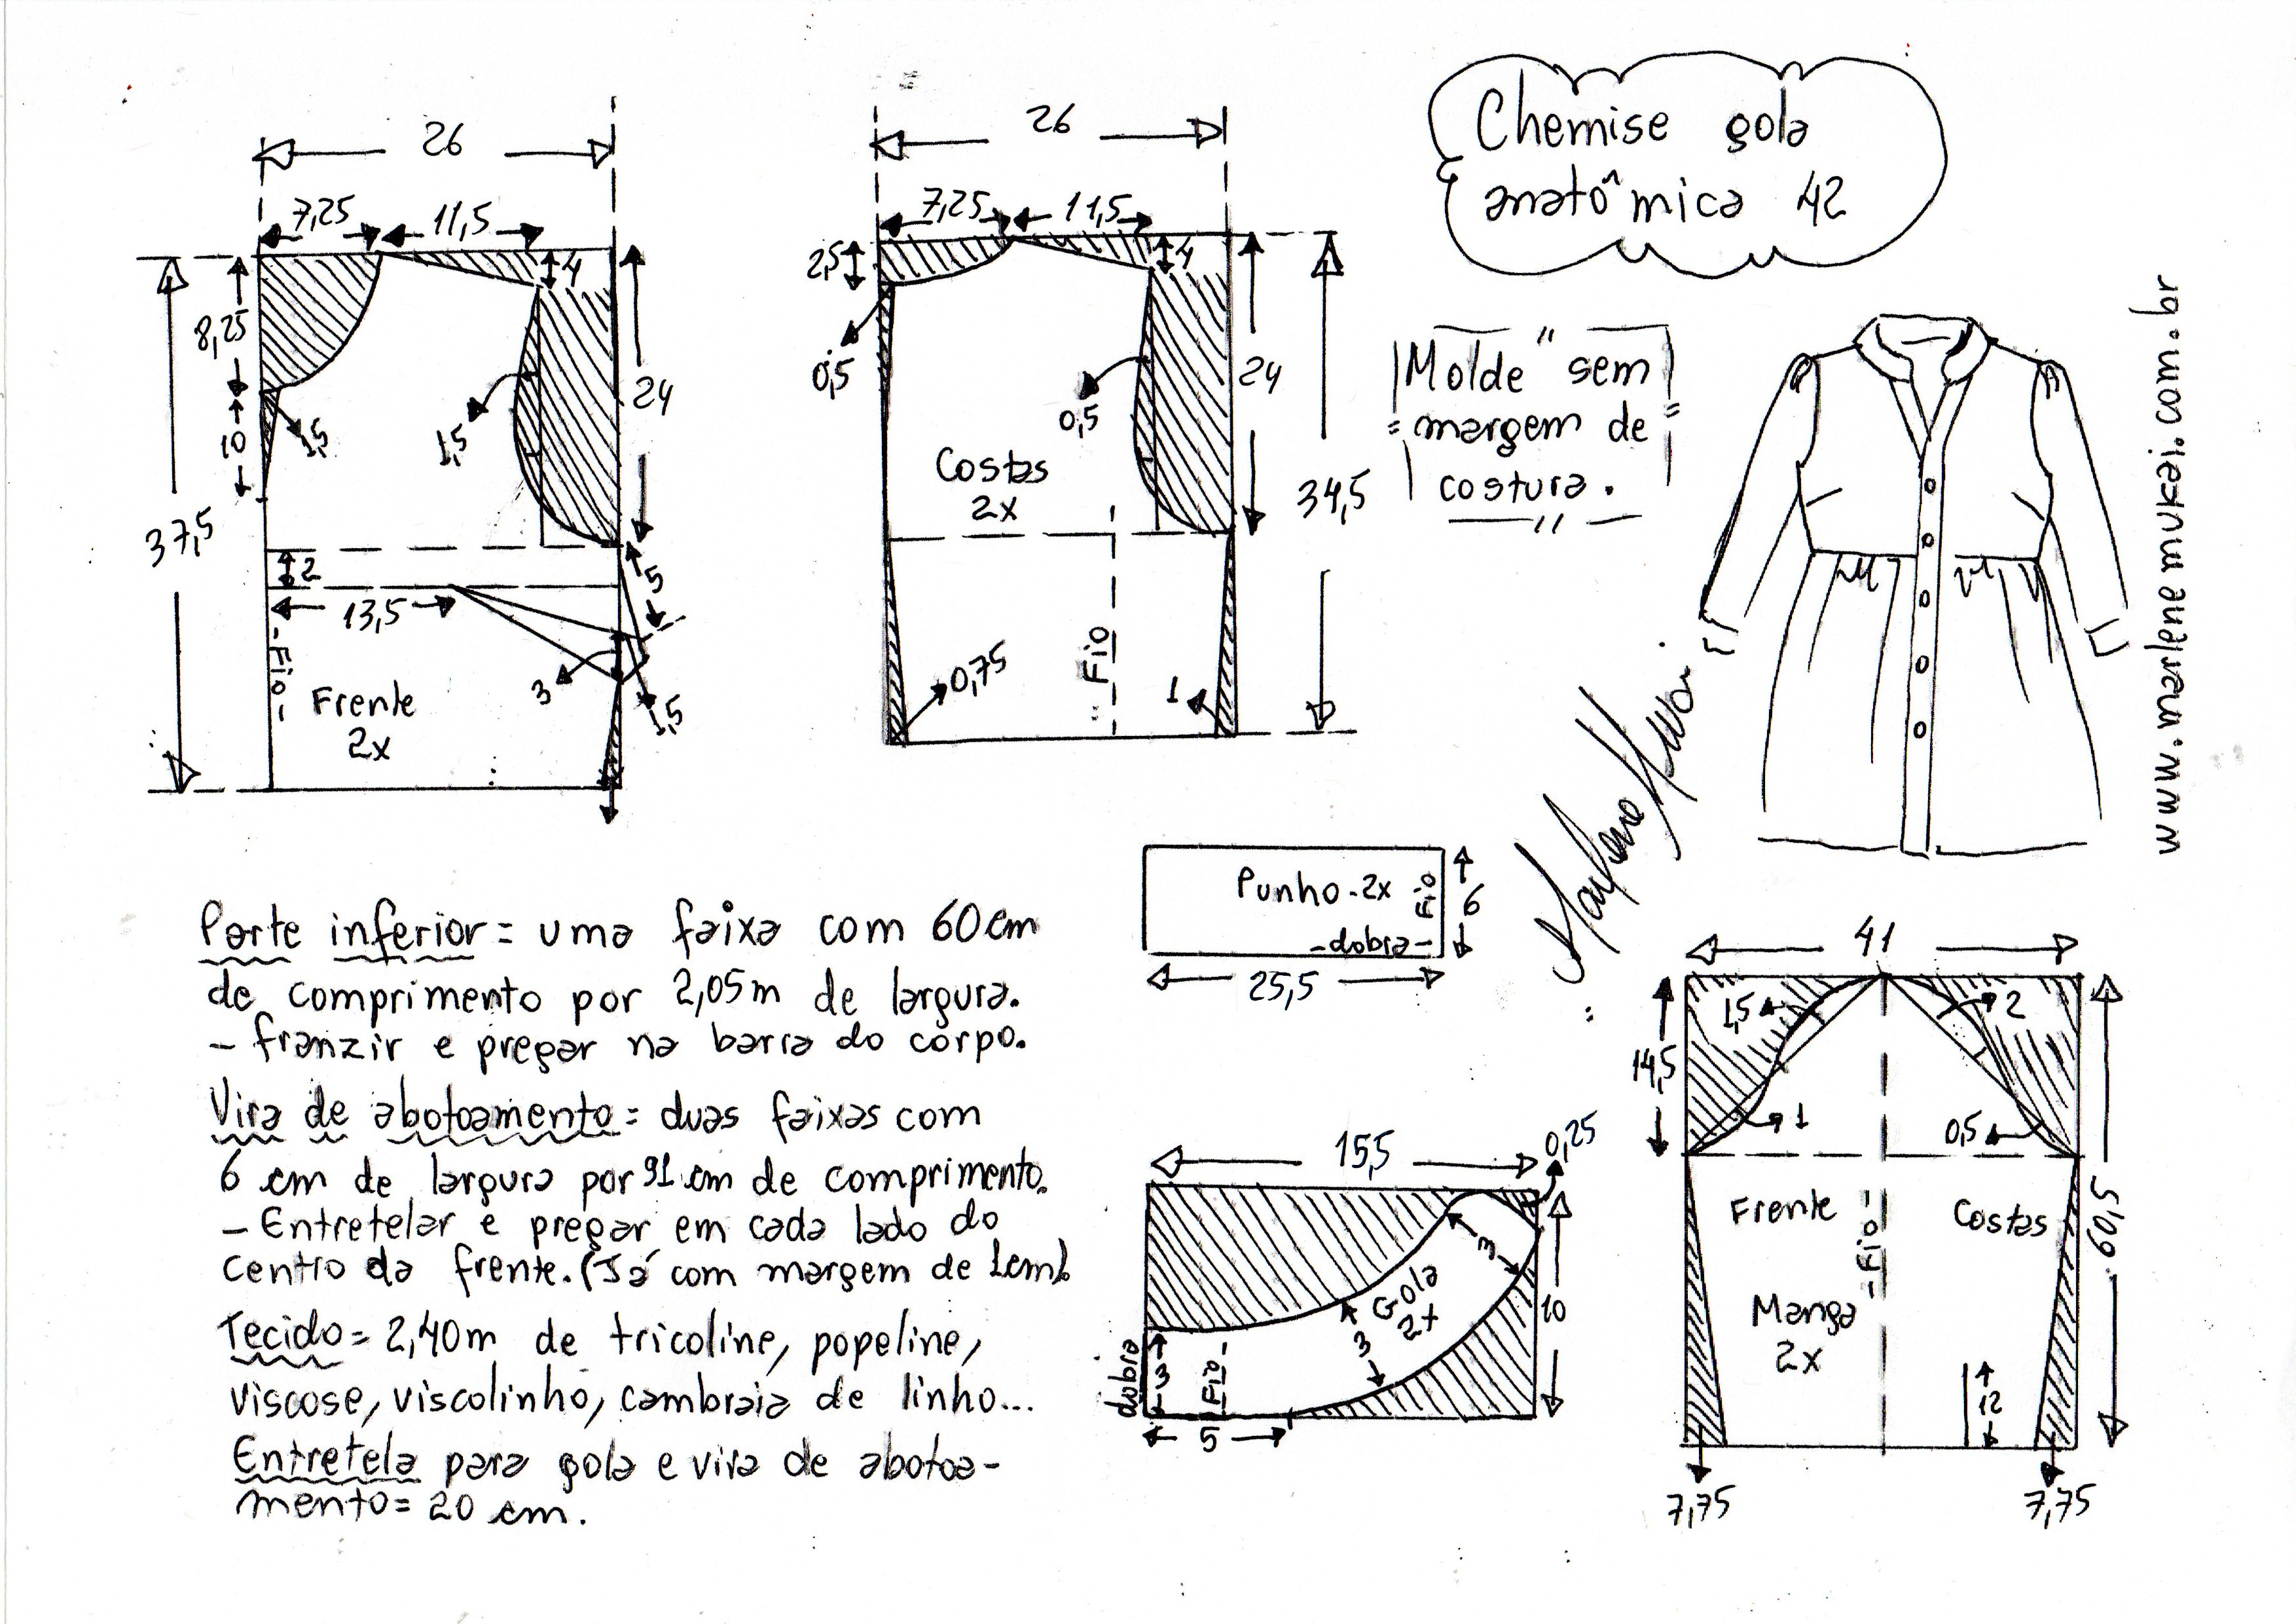 Chemise gola
anatômica 42
"Molde" sem
margem de
costura.
www.marlenemukai.com.br
Marlene Mukai
26
7,25
11,5
4
8,25
10
1,5
1,5
24
37,5
2
13,5
5
3
1,5
-Fio-
Frente
2x
26
7,25
11,5
2,5
4
0,5
0,5
24
34,5
Costas
2x
Fio
0,75
1
Punho-2x
Fio
6
-dobra-
25,5
15,5
0,25
3
Gola
2x
3
10
dobra
3
Fio
5
41
1,5
2
14,5
1
0,5
Frente
Costas
-Fio-
60,5
Manga
2x
12
7,75
7,75
Parte inferior = uma faixa com 60cm
de comprimento por 2,05m de largura.
- franzir e pregar na barra do corpo.
Vira de abotoamento = duas faixas com
6 cm de largura por 91 cm de comprimento.
- Entretelar e pregar em cada lado do
centro da frente. (Já com margem de 1cm).
Tecido = 2,40m de tricoline, popeline,
viscose, viscolinho, cambraia de linho...
Entretela para gola e vira de abotoa-
mento = 20 cm.